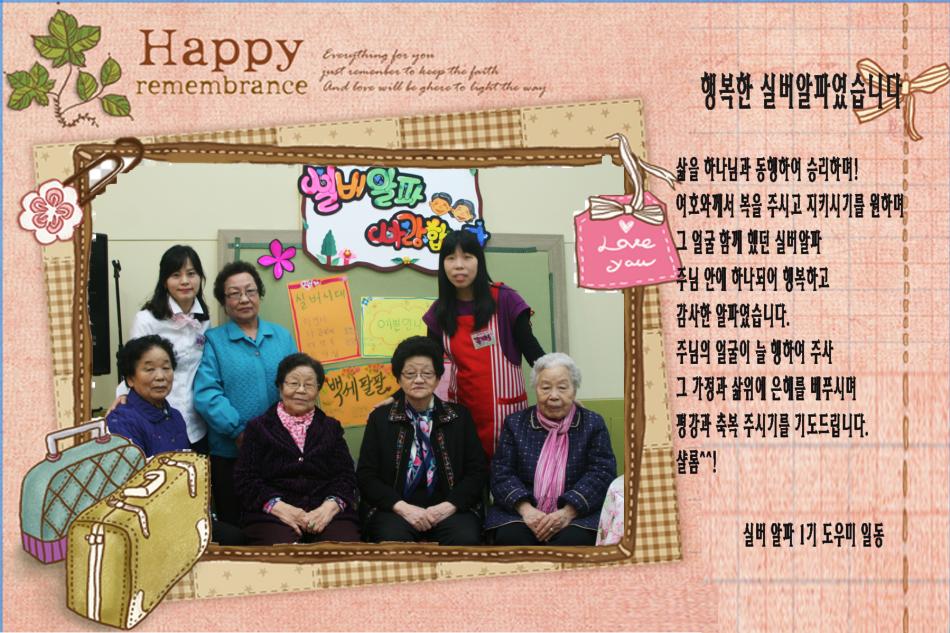 Happy
remembrance
Everything for you
just remember to keep the faith
And love will be ghere to light the way
행복한 실버알파였습니다
삶을 하나님과 동행하여 승리하며!
여호와께서 복을 주시고 지키시기를 원하며
그 얼굴 함께 했던 실버알파
주님 안에 하나되어 행복하고
감사한 알파였습니다.
주님의 얼굴이 늘 행하여 주사
그 가정과 삶위에 은혜를 베푸시며
평강과 축복 주시기를 기도드립니다.
샬롬^^!
실버 알파 1기 도우미 일동
Love
you
실버알파
사랑합
실버시대
예쁜언니
백세팔팔